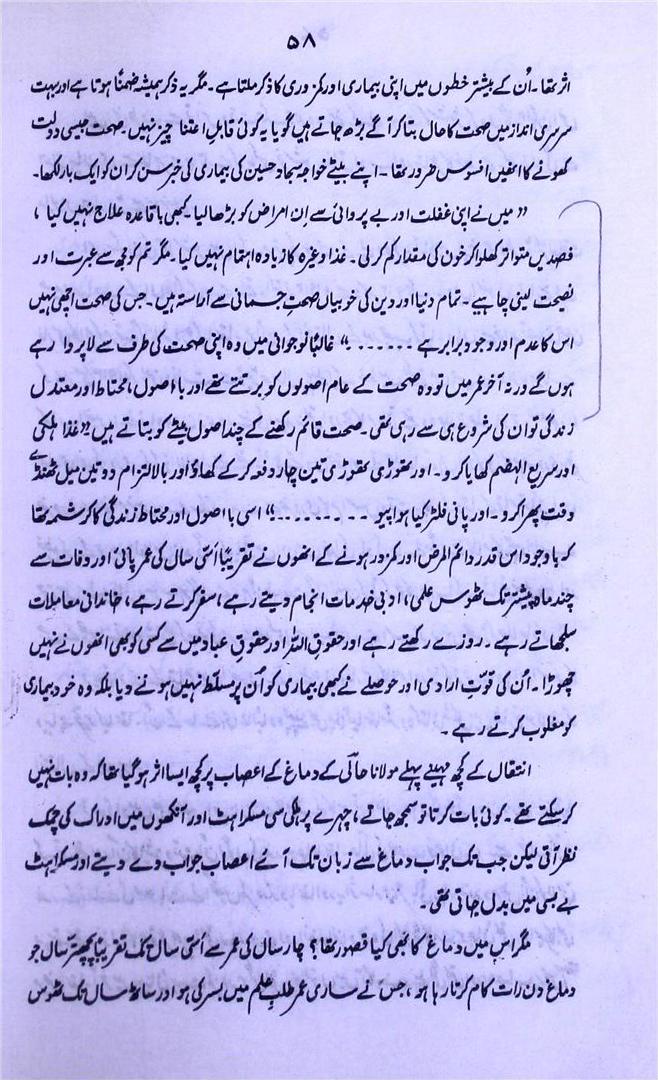 ۵۸
اثر تھا۔ اُن کے بیشتر خطوں میں اپنی بیماری اور کمزوری کا ذکر ملتا ہے۔ مگر یہ ذکر ہمیشہ ضمناً ہوتا ہے اور بہت
سرسری انداز میں صحت کا حال بتا کر آگے بڑھ جاتے ہیں گویا یہ کوئی قابلِ اعتنا چیز نہیں۔ صحت جیسی دولت
کھونے کا انھیں افسوس ضرور تھا۔ اپنے بیٹے خواجہ سجاد حسین کی بیماری کی خبر سن کر ان کو ایک بار لکھا۔
”میں نے اپنی غفلت اور بے پروائی سے اِن امراض کو بڑھا لیا۔ کبھی باقاعدہ علاج نہیں کیا،
فصدیں متواتر کھلوا کر خون کی مقدار کم کر لی۔ غذا وغیرہ کا زیادہ اہتمام نہیں کیا۔ مگر تم کو مجھ سے عبرت اور
نصیحت لینی چاہیے۔ تمام دنیا اور دین کی خوبیاں صحتِ جسمانی سے آراستہ ہیں۔ جس کی صحت اچھی نہیں
اس کا عدم اور وجود برابر ہے ......“ غالباً نوجوانی میں وہ اپنی صحت کی طرف سے لا پروا رہے
ہوں گے ورنہ آخر عمر میں تو وہ صحت کے عام اصولوں کو برتتے تھے اور با اصول، محتاط اور معتدل
زندگی تو ان کی شروع ہی سے رہی تھی۔ صحت قائم رکھنے کے چند اصول بیٹے کو بتاتے ہیں: ”غذا ہلکی
اور سریع الہضم کھایا کرو۔ اور تھوڑی تھوڑی تین چار دفعہ کر کے کھاؤ اور بالالتزام دو تین میل ٹھنڈے
وقت پھرا کرو۔ اور پانی فلٹر کیا ہوا پیو ........“ اسی با اصول اور محتاط زندگی کا کرشمہ تھا
کہ باوجود اس قدر دائم المرض اور کمزور ہونے کے انھوں نے تقریباً اسّی سال کی عمر پائی اور وفات سے
چند ماہ پیشتر تک ٹھوس علمی، ادبی خدمات انجام دیتے رہے، سفر کرتے رہے، خاندانی معاملات
سلجھاتے رہے۔ روزے رکھتے رہے اور حقوق اللہ اور حقوقِ عباد میں سے کسی کو بھی انھوں نے نہیں
چھوڑا۔ اُن کی قوّتِ ارادی اور حوصلے نے کبھی بیماری کو اُن پر مسلّط نہیں ہونے دیا بلکہ وہ خود بیماری
کو مغلوب کرتے رہے۔
انتقال کے کچھ مہینے پہلے مولانا حالی کے دماغ کے اعصاب پر کچھ ایسا اثر ہو گیا تھا کہ وہ بات نہیں
کر سکتے تھے۔ کوئی بات کرتا تو سمجھ جاتے، چہرے پر ہلکی سی مسکراہٹ اور آنکھوں میں ادراک کی چمک
نظر آتی لیکن جب تک جواب دماغ سے زبان تک آئے اعصاب جواب دے دیتے اور مسکراہٹ
بے بسی میں بدل جاتی تھی۔
مگر اس میں دماغ کا بھی کیا قصور تھا؟ چار سال کی عمر سے اسّی سال تک تقریباً پچھتر سال جو
دماغ دن رات کام کرتا رہا ہو، جس نے ساری عمر طلبِ علم میں بسر کی ہو اور ساٹھ سال تک ٹھوس